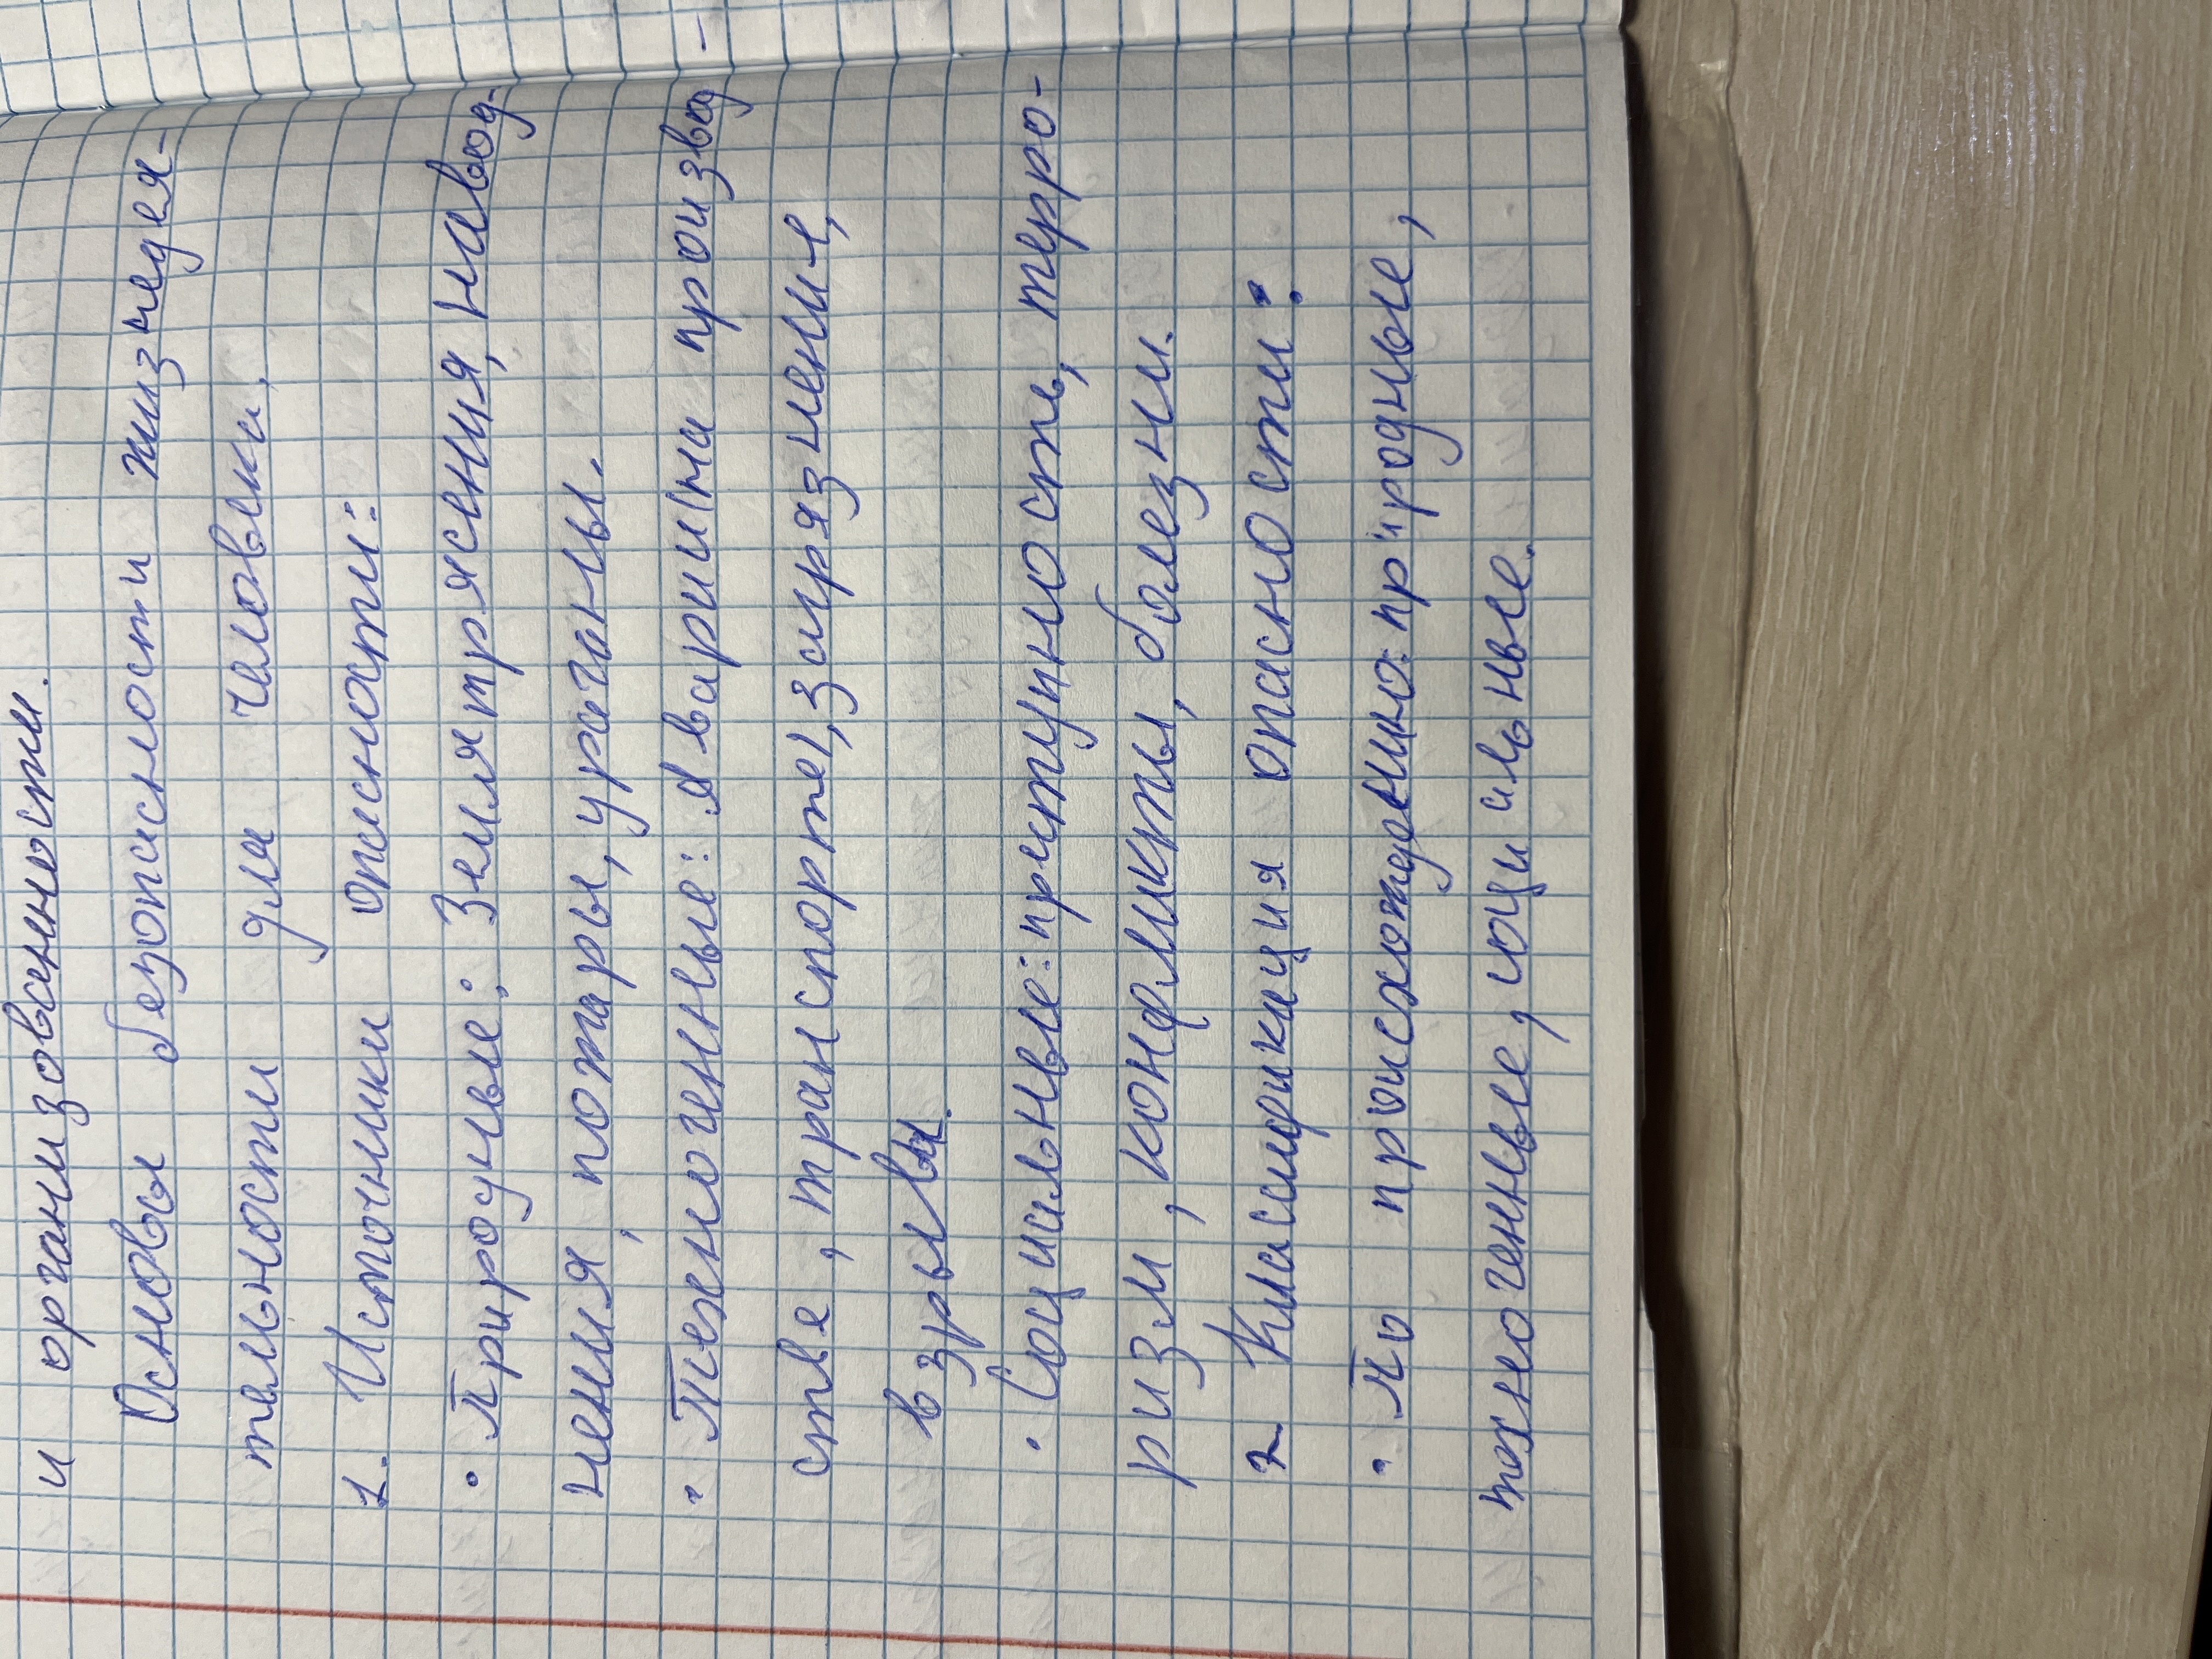 и организованности.
Основы безопасности жизнедея-
тельности для человека.
1. Источники опасности:
• Природные: Землятрясения, навод-
нения, пожары, ураганы.
• Техногенные: Аварии (на производ-
стве, транспорте), загрязнение,
взрывы.
• Социальные: преступность, терро-
ризм, конфликты, болезни.
2. Классификация опасности:
• По происхождению: природные,
техногенные, социальные.